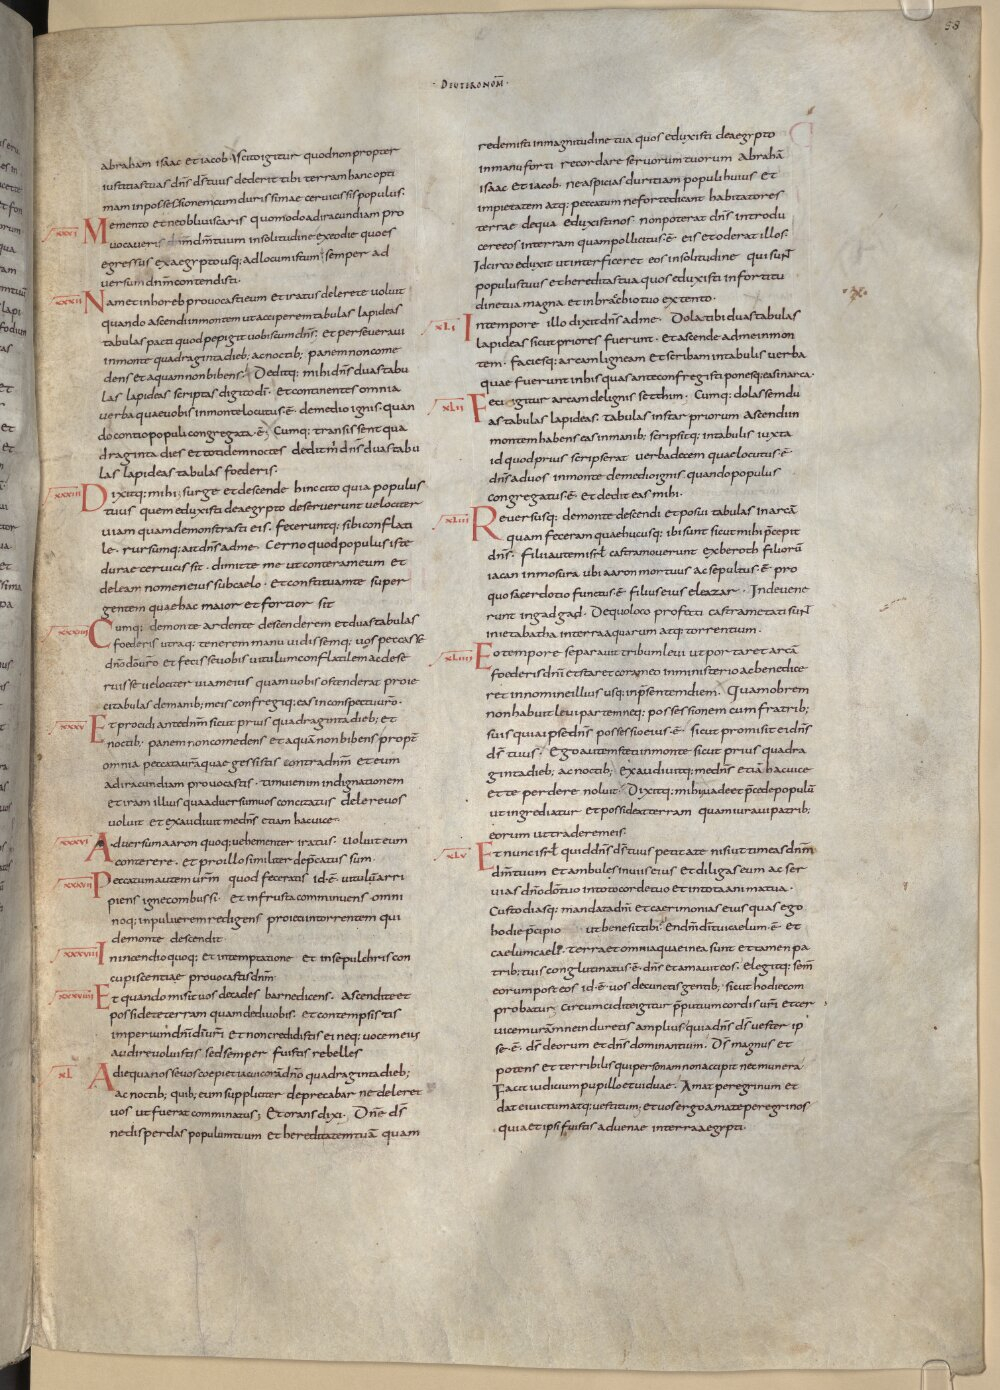 58
· DEUTERONOM̅ ·
abraham isaac et iacob. Scito igitur quod non propter
iustitias tuas dn̅s ds̅ tuus dederit tibi terram hanc opti
mam in possessionem cum durissimae cervicis sis populus.
xxxi Memento et ne obliviscaris quomodo ad iracundiam pro
vocaveris dn̅m dm̅ tuum in solitudine ex eo die quo es
egressus ex aegypto usq; ad locum istum; semper ad
versum dn̅m contendisti.
xxxii Nam et in horeb provocasti eum et iratus delere te voluit
quando ascendi in montem ut acciperem tabulas lapideas
tabulas pacti quod pepigit vobiscum dn̅s; et perseveravi
in monte quadraginta dieb; ac noctib; panem non come
dens et aquam non bibens; Deditq; mihi dn̅s duas tabu
las lapideas scriptas digito di̅. et continentes omnia
verba quae vobis in monte locutus .e̅. de medio ignis. quan
do contio populi congregata .e̅. Cumq; transissent qua
draginta dies et totidem noctes dedit m̅ dn̅s duas tabu
las lapideas tabulas foederis.
xxxiii Dixitq; mihi; surge et descende hinc cito quia populus
tuus quem eduxisti de aegypto deseruerunt velociter
viam quam demonstrasti eis. feceruntq; sibi conflati
le. rursumq; ait dn̅s ad me. Cerno quod populus iste
durae cervicis sit. dimitte me ut conteram eum et
deleam nomen eius sub caelo. et constituam te super
gentem quae hac maior et fortior sit
xxxiiii Cumq; de monte ardente descenderem et duas tabulas
foederis utraq; tenerem manu vidissemq; vos peccasse
dn̅o do̅ vr̅o et fecisse vobis vitulum conflatilem ac dese
ruisse velociter viam eius quam vobis ostenderat proie
ci tabulas de manib; meis confregiq; eas in conspectu vr̅o.
xxxv Et procidi ante dn̅m sicut prius quadraginta dieb; et
noctib; panem non comedens et aquā non bibens propt̅
omnia peccata vr̅a quae gessistis contra dn̅m et eum
ad iracundiam provocastis. timui enim indignationem
et iram illius qua adversum vos concitatus delere vos
voluit et exaudivit me dn̅s etiam hac vice.
xxxvi Adversum aaron quoq; vehementer iratus. voluit eum
conterere. et pro illo similiter dep̅catus sum.
xxxvii Peccatum autem vr̅m quod feceratis id .e̅. vitulū arri
piens igne combussi. et in frusta comminuens omni
noq; in pulverem redigens proieci in torrentem qui
de monte descendit
xxxviii In incendio quoq; et in temptatione et in sepulchris con
cupiscentiae provocastis dn̅m
xxxviiii Et quando misit vos de cades barne dicens. Ascendite et
possidete terram quam dedi vobis. et contempsistis
imperium dn̅i di̅ vr̅i et non credidistis ei neq; vocem eius
audire voluistis sed semper fuistis rebelles
xl A die qua nosse vos coepi et iacui corā dn̅o quadraginta dieb;
ac noctib; quib; eum suppliciter deprecabar ne deleret
vos ut fuerat comminatus; Et orans dixi. Dn̅e ds̅
ne disperdas populum tuum et hereditatem tuā quam
redemisti in magnitudine tua quos eduxisti de aegypto
in manu forti recordare servorum tuorum abrahā
isaac et iacob. ne aspicias duritiam populi huius et
impietatem atq; peccatum ne forte dicant habitatores
terrae de qua eduxisti nos. non poterat dn̅s introdu
cere eos in terram quam pollicitus .e̅. eis et oderat illos.
Idcirco eduxit ut interficeret eos in solitudine qui sun̅t
populus tuus et hereditas tua quos eduxisti in fortitu
dine tua magna et in brachio tuo extento.
xli In tempore illo dixit dn̅s ad me. Dola tibi duas tabulas
lapideas sicut priores fuerunt. et ascende ad me in mon
tem. faciesq; arcam ligneam et scribam in tabulis verba
quae fuerunt in his quas ante confregisti ponesq; eas in arca.
xlii Feci igitur arcam de lignis setthim. Cumq; dolassem du
as tabulas lapideas. tabulas instar priorum ascendi in
montem habens eas in manib; scripsitq; in tabulis iuxta
id quod prius scripserat verba decem quae locutus .e̅.
dn̅s ad vos in monte de medio ignis. quando populus
congregatus .e̅. et dedit eas mihi.
xliii Reversusq; de monte descendi et posui tabulas in arcā
quam feceram quae hucusq; ibi sunt sicut mihi p̅cepit
dn̅s. Filii autem isrl̅ castra moverunt ex beroth filiorū
iacan in mosera ubi aaron mortuus ac sepultus .e̅. pro
quo sacerdotio functus .e̅. filius eius eleazar. Inde vene
runt in gadgad. De quo loco profecti castrametati sun̅t
in ietabatha in terra aquarum atq; torrentium.
xliiii Eo tempore separavit tribum levi ut portaret arcā
foederis dn̅i et staret coram eo in ministerio ac benedice
ret in nomine illius usq; in p̅sentem diem. Quamobrem
non habuit levi partem neq; possessionem cum fratrib;
suis quia ipse dn̅s possessio eius .e̅. sicut promisit ei dn̅s
ds̅ tuus. Ego autem steti in monte sicut prius quadra
ginta dieb; ac noctib; exaudivitq; me dn̅s etiā hac vice
et te perdere noluit. Dixitq; mihi; vade et p̅cede populū
ut ingrediatur et possideat terram quam iuravi patrib;
eorum ut traderem eis.
xlv Et nunc isrl̅ quid dn̅s ds̅ tuus petit a te nisi ut timeas dn̅m
dm̅ tuum et ambules in viis eius et diligas eum ac ser
vias dn̅o do̅ tuo in toto corde tuo et in tota anima tua.
Custodiasq; mandata dn̅i et caerimonias eius quas ego
hodie p̅cipio ut bene sit tibi. En dn̅i di̅ tui caelum .e̅. et
caelum caeli. terra et omnia quae in ea sunt et tamen pa
trib; tuis conglutinatus .e̅. dn̅s et amavit eos. elegitq; sem̅
eorum post eos id .e̅. vos de cunctis gentib; sicut hodie com
probatur. circumcidite igitur p̅putium cordis vr̅i et cer
vicem vr̅am ne induretis amplius quia dn̅s ds̅ vester ip
se .e̅. ds̅ deorum et dn̅s dominantium. Ds̅ magnus et
potens et terribilis qui personam non accipit nec munera
Facit iudicium pupillo et viduae. Amat peregrinum et
dat ei victum atq; vestitum; et vos ergo amate peregrinos
quia et ipsi fuistis advenae in terra aegypti.